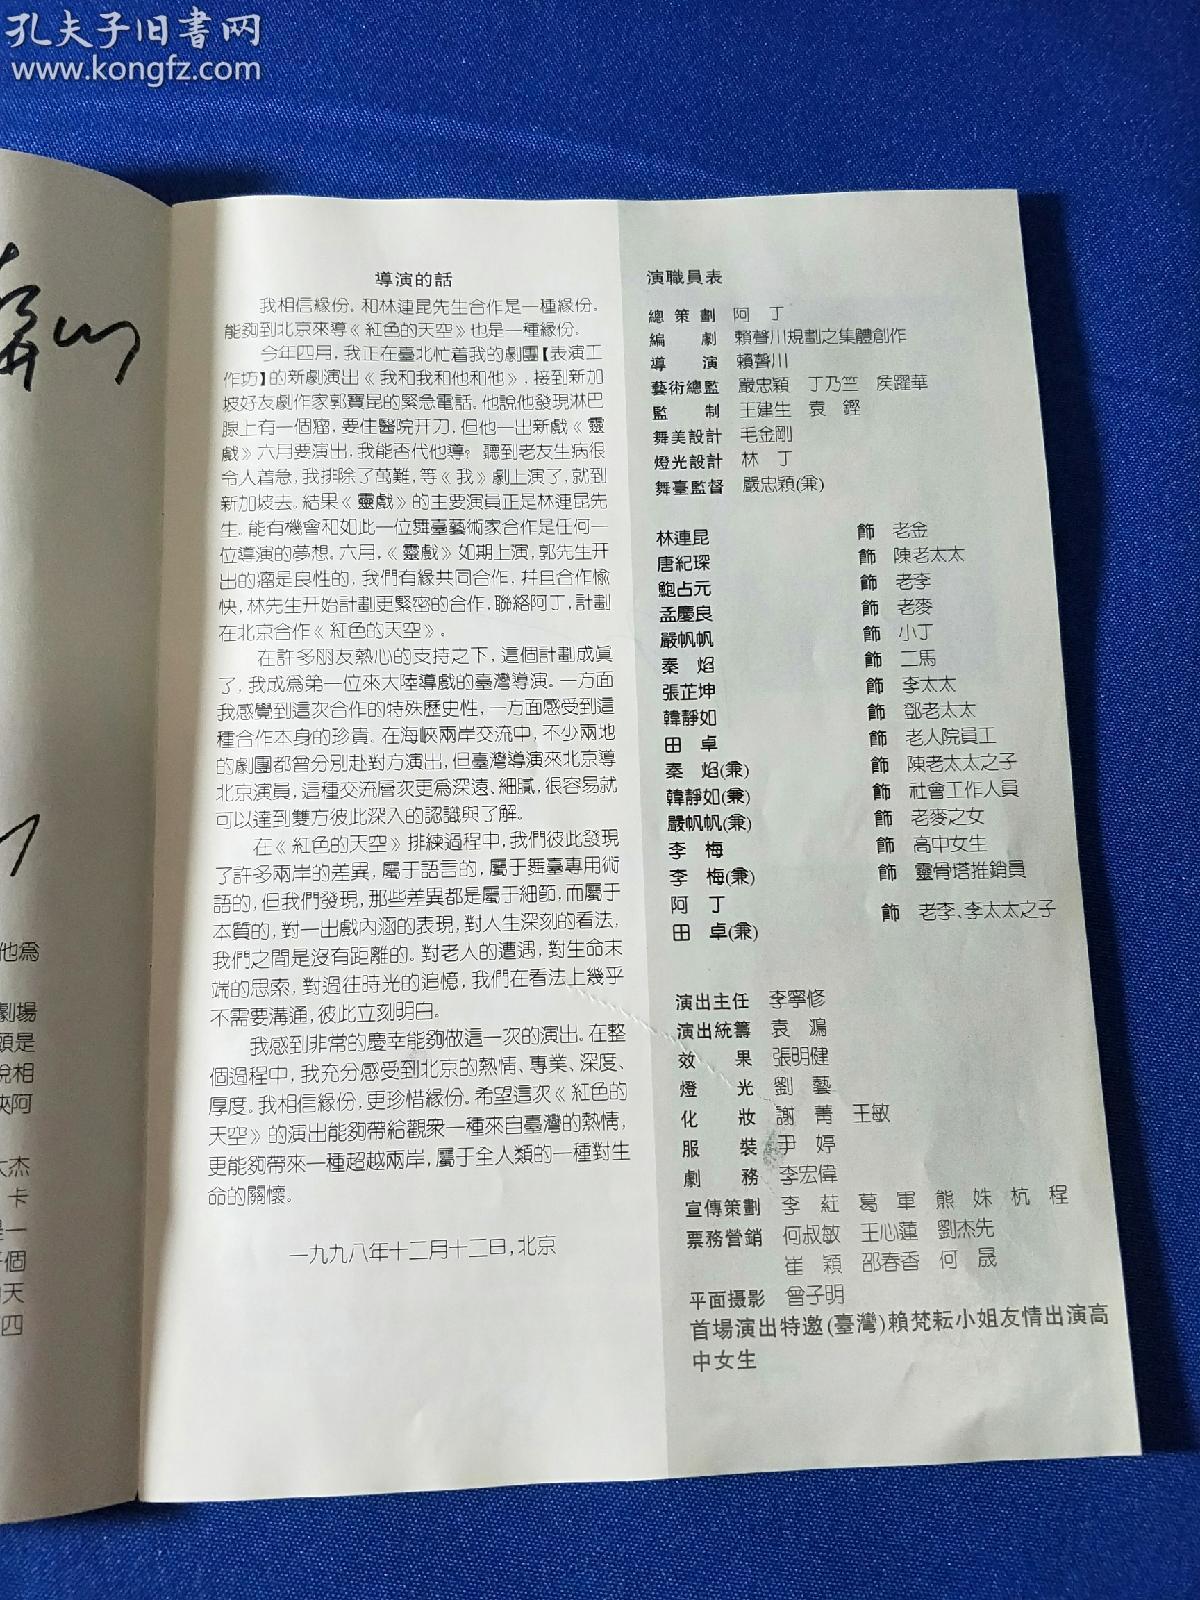 孔夫子旧書网
www.kongfz.com
他爲
劇場
頭是
說相
大杰
卡
是一
個
天
四
導演的話
我相信緣份。和林連昆先生合作是一種緣份。
能夠到北京來導《紅色的天空》也是一種緣份。
今年四月，我正在臺北忙着我的劇團【表演工
作坊】的新劇演出《我和我和他和他》，接到新加
坡好友劇作家郭寶昆的緊急電話。他說他發現淋巴
腺上有一個瘤，要住醫院開刀，但他一出新戲《靈
戲》六月要演出，我能否代他導？聽到老友生病很
令人着急，我排除了萬難，等《我》劇上演了，就到
新加坡去。結果《靈戲》的主要演員正是林連昆先
生。能有機會和如此一位舞臺藝術家合作是任何一
位導演的夢想。六月，《靈戲》如期上演，郭先生開
出的瘤是良性的，我們有緣共同合作，并且合作愉
快，林先生開始計劃更緊密的合作，聯絡阿丁，計劃
在北京合作《紅色的天空》。
在許多朋友熱心的支持之下，這個計劃成眞
了，我成爲第一位來大陸導戲的臺灣導演。一方面
我感覺到這次合作的特殊歷史性，一方面感受到這
種合作本身的珍貴。在海峽兩岸交流中，不少兩地
的劇團都曾分別赴對方演出，但臺灣導演來北京導
北京演員，這種交流層次更爲深遠、細膩，很容易就
可以達到雙方彼此深入的認識與了解。
在《紅色的天空》排練過程中，我們彼此發現
了許多兩岸的差異，屬于語言的，屬于舞臺專用術
語的，但我們發現，那些差異都是屬于細節，而屬于
本質的，對一出戲內涵的表現，對人生深刻的看法，
我們之間是沒有距離的。對老人的遭遇，對生命末
端的思索，對過往時光的追憶，我們在看法上幾乎
不需要溝通，彼此立刻明白。
我感到非常的慶幸能夠做這一次的演出。在整
個過程中，我充分感受到北京的熱情、專業、深度、
厚度。我相信緣份，更珍惜緣份。希望這次《紅色的
天空》的演出能夠帶給觀衆一種來自臺灣的熱情，
更能夠帶來一種超越兩岸，屬于全人類的一種對生
命的關懷。
一九九八年十二月十二日，北京
演職員表
總策劃 阿丁
編劇 賴聲川規劃之集體創作
導演 賴聲川
藝術總監 嚴忠穎 丁乃竺 侯躍華
監制 王建生 袁鏗
舞美設計 毛金剛
燈光設計 林丁
舞臺監督 嚴忠穎(兼)
林連昆 飾 老金
唐紀琛 飾 陳老太太
鮑占元 飾 老李
孟慶良 飾 老麥
嚴帆帆 飾 小丁
秦焰 飾 二馬
張芷坤 飾 李太太
韓靜如 飾 鄧老太太
田卓 飾 老人院員工
秦焰(兼) 飾 陳老太太之子
韓靜如(兼) 飾 社會工作人員
嚴帆帆(兼) 飾 老麥之女
李梅 飾 高中女生
李梅(兼) 飾 靈骨塔推銷員
阿丁
田卓(兼) 飾 老李、李太太之子
演出主任 李寧修
演出統籌 袁鴻
效果 張明健
燈光 劉藝
化妝 謝菁 王敏
服裝 尹婷
劇務 李宏偉
宣傳策劃 李紅 葛軍 熊姝 杭程
票務營銷 何叔敏 王心蓮 劉杰先
崔穎 邵春香 何晟
平面摄影 曾子明
首場演出特邀(臺灣)賴梵耘小姐友情出演高
中女生